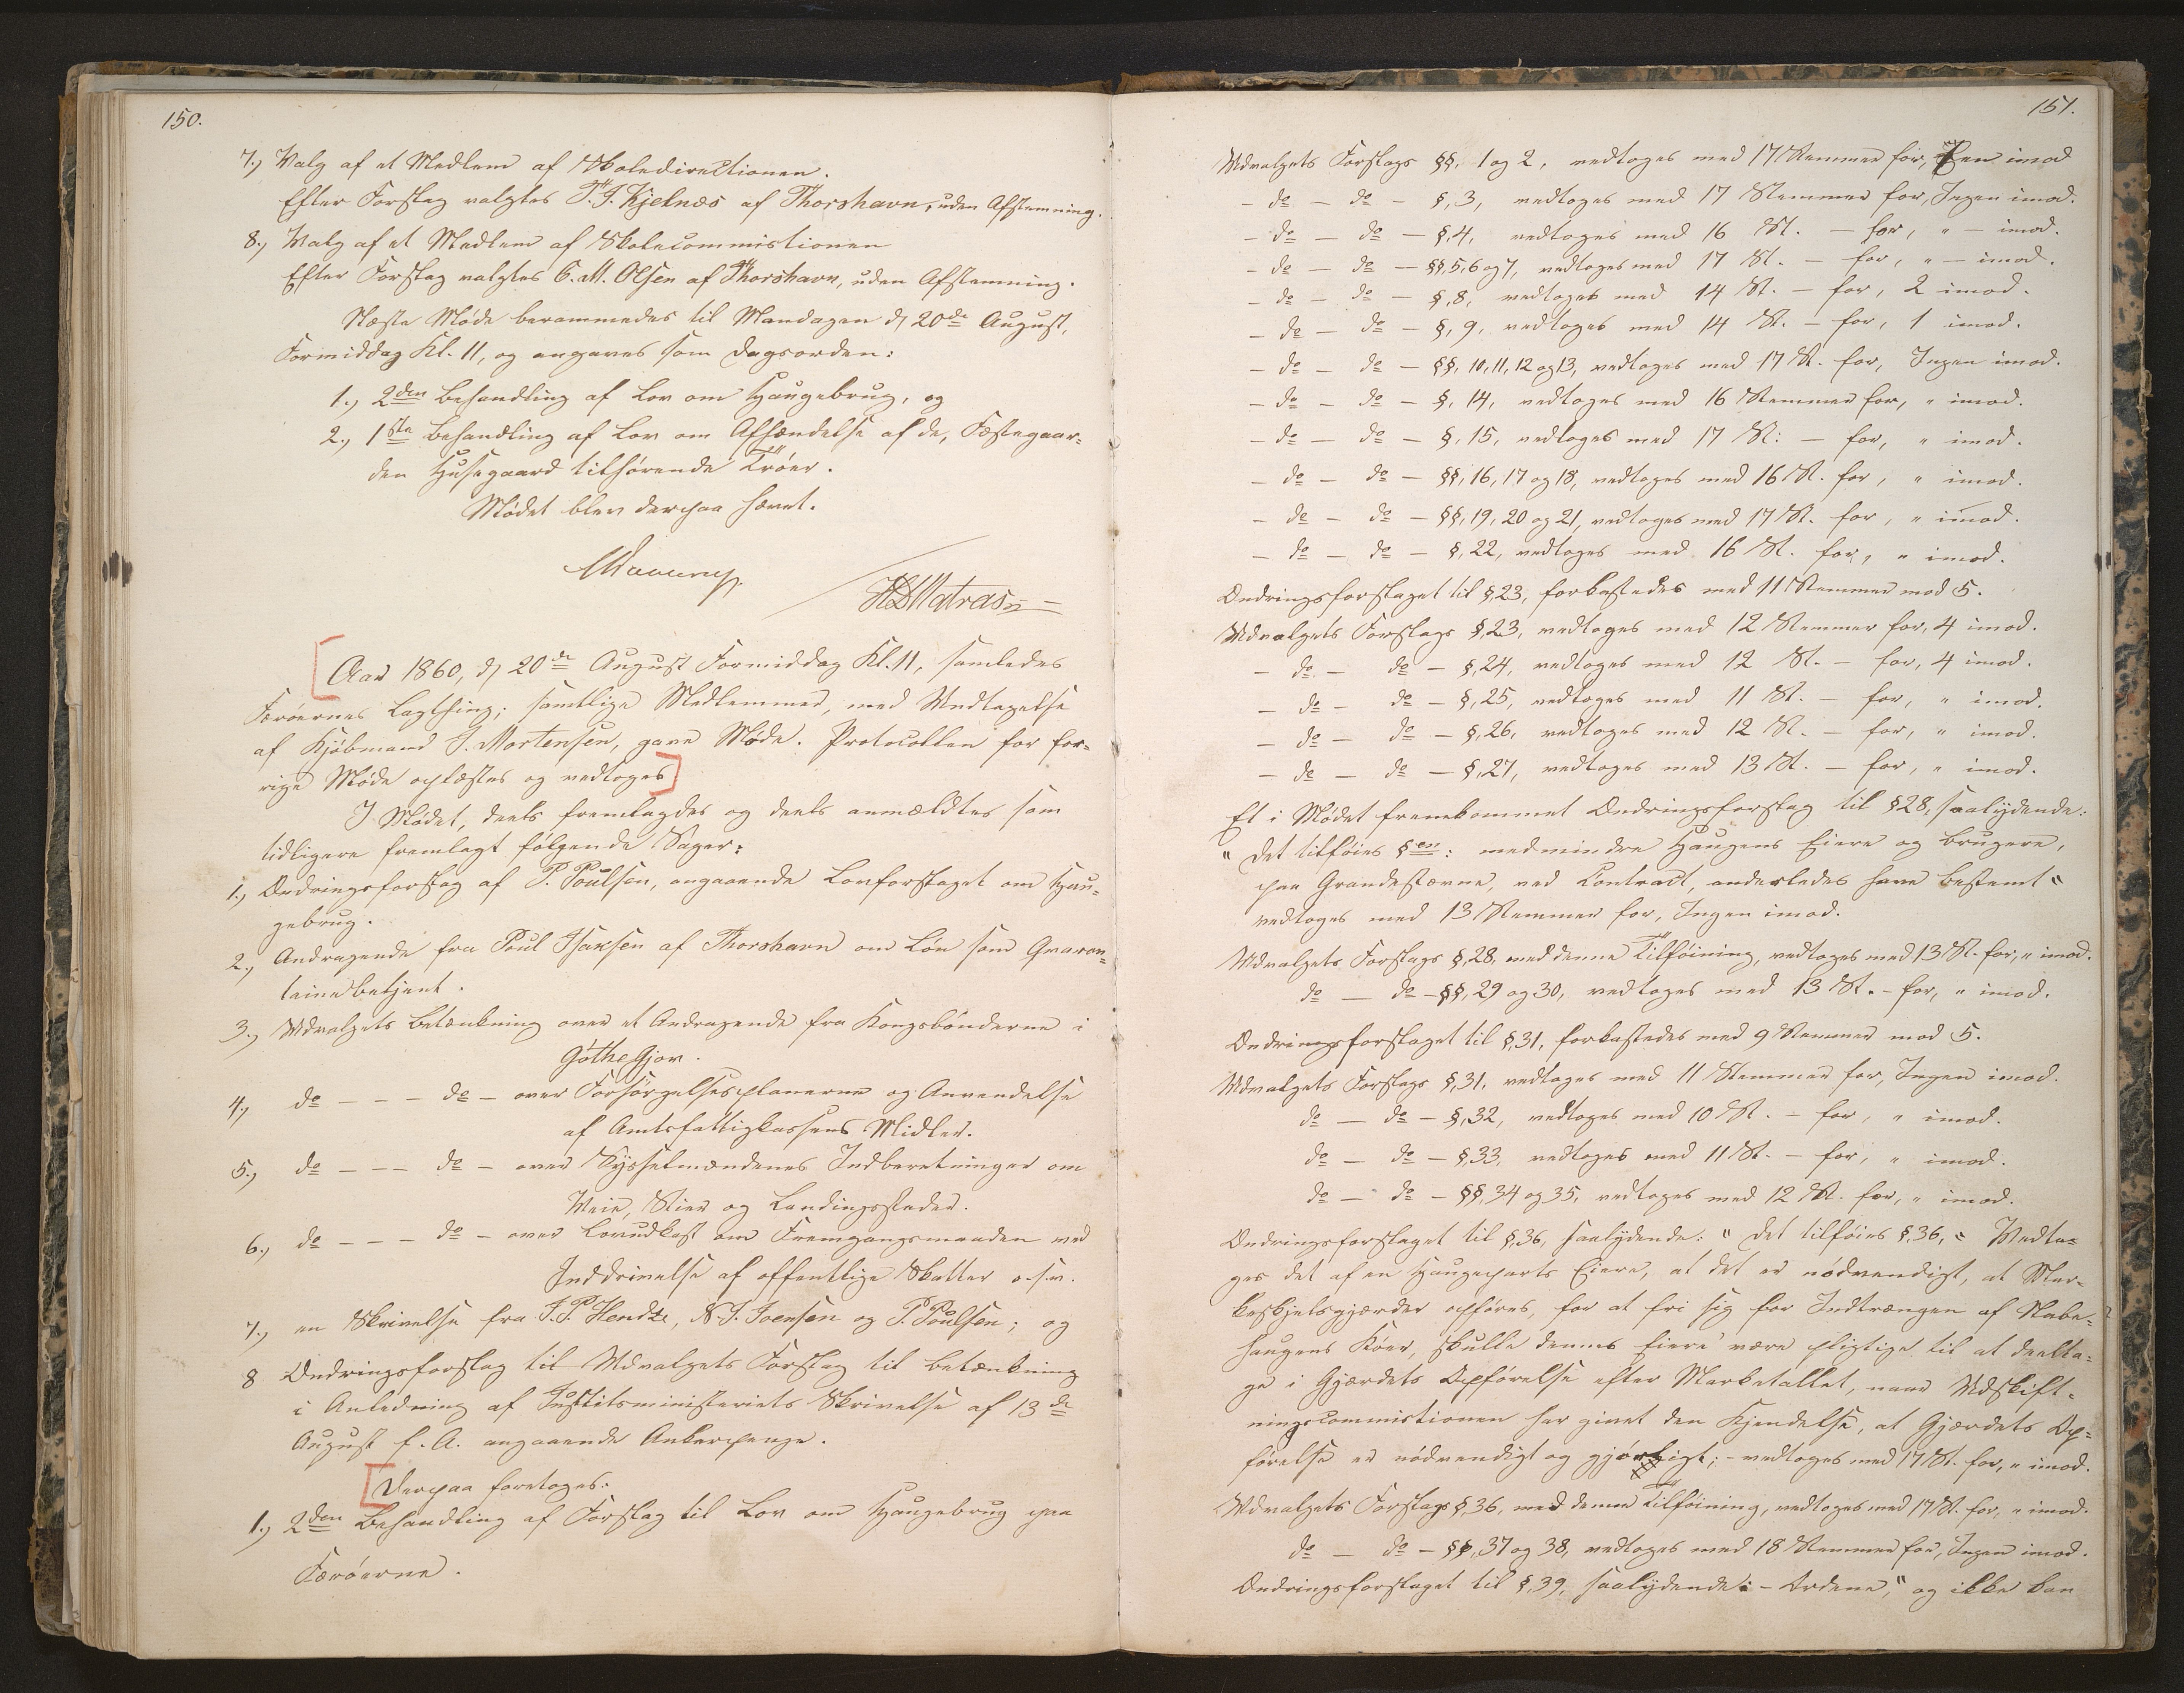 150.
7.) Valg af et Medlem af Skoledirectionen.
Efter Forslag valgtes P. J. Kjelnæs af Thorshavn, uden Afstemning.
8.) Valg af et Medlem af Skolecommissionen
Efter Forslag valgtes C. M. Olsen af Thorshavn, uden Afstemning.
Næste Møde berammedes til Mandagen d, 20de August,
Formiddag Kl. 11, og angaves som Dagsorden:
1.) 2den Behandling af Lov om Haugebrug, og
2.) 1ste Behandling af Lov om Afhændelse af de, Fæstegaar-
den Husegaard tilhørende Tröer.
Mødet blev derpaa hævet.
HDMatras
Aar 1860, d, 20de August Formiddag Kl. 11, samledes
Færöernes Lagthing; samtlige Medlemmer, med Undtagelse
af Kjöbmand J. Mortensen, gave Møde. Protocollen for for-
rige Møde oplæstes og vedtoges
I Mødet, deels fremlagdes og deels anmældtes som
tidligere fremlagt følgende Sager:
1.) Ændringsforslag af P. Poulsen, angaaende Lovforslaget om Hau-
gebrug.
2.) Andragende fra Poul Isaksen af Thorshavn om Løn som Qvaran-
tainebetjent.
3.) Udvalgets Betænkning over et Andragende fra Kongsbönderne i
Göthegjov.
4.) do - - - do - over Forsörgelsesplanerne og Anvendelse
af Amtsfattigkassens Midler.
5.) do - - - do - over Sysselmændenes Indberetninger om
Veie, Stier og Landingssteder.
6.) do - - - do - over Lovudkast om Fremgangsmaaden ved
Inddrivelse af offentlige Skatter o.s.v.
7.) en Skrivelse fra J. P. Hendze, N. J. Joensen og P. Poulsen; og
8 Ændringsforslag til Udvalgets Forslag til Betænkning
i Anledning af Justitsministeriets Skrivelse af 13de
August f. A. angaaende Ankerpenge.
Derpaa foretoges:
1.) 2den Behandling af Forslag til Lov om Haugebrug paa
Færöerne.
151.
Udvalgets Forslags §§, 1 og 2, vedtoges med 17 Stemmer for, Een imod
- do - do - §, 3, vedtoges med 17 Stemmer for, Ingen imod.
- do - do - §, 4, vedtoges med 16 St. - for, " - imod.
- do - do - §§, 5, 6 og 7, vedtoges med 17 St. - for, " - imod.
- do - do - §, 8, vedtoges med 14 St. - for, 2 imod.
- do - do - §, 9, vedtoges med 14 St. - for, 1 imod.
- do - do - §§, 10, 11, 12 og 13, vedtoges med 17 St. for, Ingen imod.
- do - do - §, 14, vedtoges med 16 Stemmer for, " imod.
- do - do - §, 15, vedtoges med 17 St: - for, " imod.
- do - do - §§, 16, 17 og 18, vedtoges med 16 St. for, " imod.
- do - do - §§, 19, 20 og 21, vedtoges med 17 St. for, " imod.
- do - do - §, 22, vedtoges med 16 St. for, " imod.
Ændringsforslaget til §, 23, forkastedes med 11 Stemmer mod 5.
Udvalgets Forslags §, 23, vedtoges med 12 Stemmer for, 4 imod.
- do - do - §, 24, vedtoges med 12 St. - for, 4 imod.
- do - do - §, 25, vedtoges med 11 St. - for, " imod.
- do - do - §, 26, vedtoges med 12 St. - for, " imod.
- do - do - §, 27, vedtoges med 13 St. - for, " imod.
Et i Mødet fremkommet Ændringsforslag til § 28, saalydende:
" Det tilföies §en: medmindre Haugens Eiere og Brugere,
paa Grandestævne, ved Contract, anderledes have bestemt "
vedtoges med 13 Stemmer for, Ingen imod.
Udvalgets Forslags §, 28, med denne Tilföining, vedtoges med 13 St. for, " imod.
do - do - §§, 29 og 30, vedtoges med 13 St. - for, " imod.
Ændringsforslaget til §, 31, forkastedes med 9 Stemmer mod 5.
Udvalgets Forslags §, 31, vedtoges med 11 Stemmer for, Ingen imod.
do - do - §, 32, vedtoges med 10 St. - for, " imod.
do - do - §, 33, vedtoges med 11 St. - for, " imod.
do - do - §§, 34 og 35, vedtoges med 12 St. for, " imod.
Ændringsforslaget til §, 36, saalydende: " Det tilföies §, 36, " Vedta-
ges det af en Haugeparts Eiere, at det er nödvendigt, at Mar-
keskjelsgjærder opföres, for at fri sig for Indtrængen af Nabo-
haugens Köer, skulle dennes Eiere være pligtige til at deelta-
ge i Gjærdets Opförelse efter Marketallet, naar Udskift-
ningscommissionen har givet den Kjendelse, at Gjærdets Op-
förelse er nödvendigt og gjörligt; - vedtoges med 17 St. for, " imod.
Udvalgets Forslags §, 36, med denne Tilföining, vedtoges med 17 St. for, " imod.
do - do - §§, 37 og 38, vedtoges med 18 Stemmer for, Ingen imod.
Ændringsforslaget til §, 39, saalydende: - Ordene, " og ikke kan